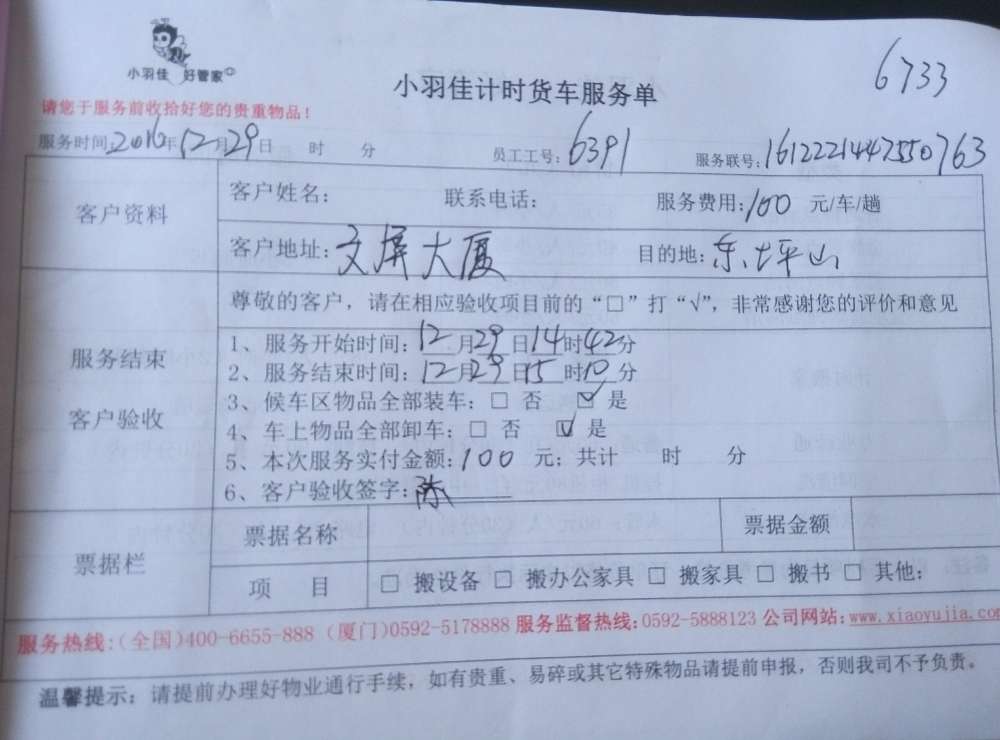 小羽佳 好管家
小羽佳计时货车服务单
6733
请您于服务前收拾好您的贵重物品!
服务时间:2016年12月29日 时 分 员工工号:6391 服务联号:1612221447550763
客户资料
客户姓名: 联系电话: 服务费用:100 元/车/趟
客户地址:文屏大厦 目的地:东坪山
服务结束
客户验收
尊敬的客户,请在相应验收项目前的“□”打“√”,非常感谢您的评价和意见
1、服务开始时间:12月29日14时42分
2、服务结束时间:12月29日15时10分
3、候车区物品全部装车:□ 否 ☑ 是
4、车上物品全部卸车:□ 否 ☑ 是
5、本次服务实付金额:100 元;共计 时 分
6、客户验收签字:陈
票据栏
票据名称 票据金额
项 目 □ 搬设备 □ 搬办公家具 □ 搬家具 □ 搬书 □ 其他:
服务热线:(全国)400-6655-888 (厦门)0592-5178888 服务监督热线:0592-5888123 公司网站:www.xiaoyujia.com
温馨提示:请提前办理好物业通行手续,如有贵重、易碎或其它特殊物品请提前申报,否则我司不予负责。